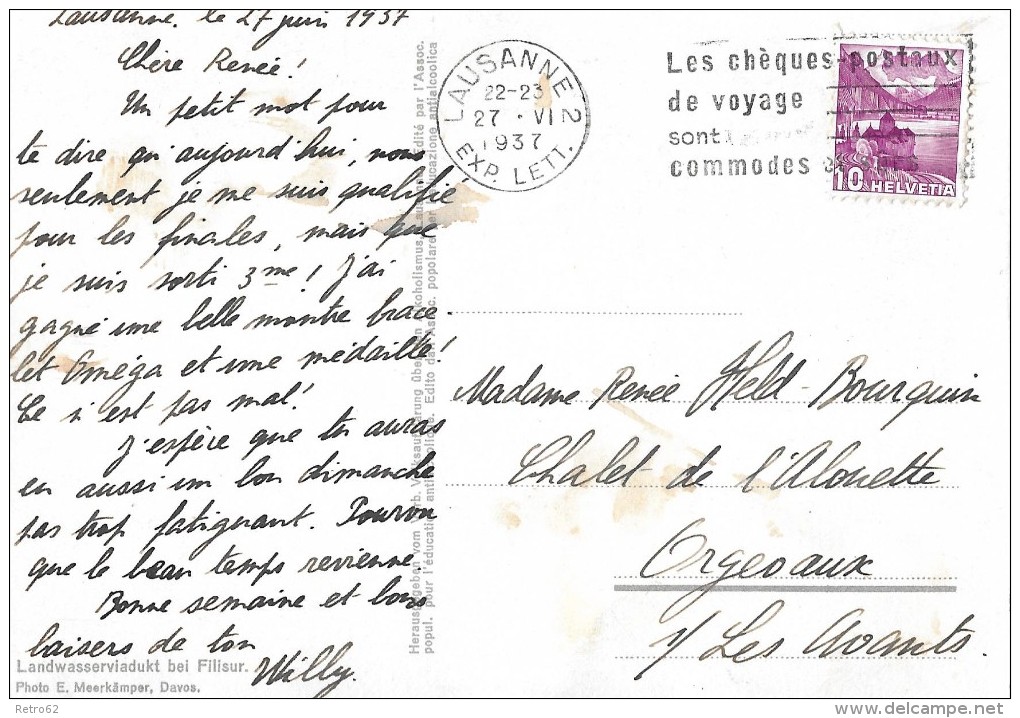 Lausanne, le 27 juin 1937
Chère Renée!
Un petit mot pour
te dire qu'aujourd'hui, nous
seulement je me suis qualifié
pour les finales, mais que
je suis sorti 3me! J'ai
gagné une belle montre brace-
let Oméga et une médaille!
Ce n'est pas mal!
J'espère que tu auras
eu aussi un bon dimanche
pas trop fatiguant. Pourvu
que le beau temps revienne.
Bonne semaine et bons
baisers de ton
Willy.
Landwasserviadukt bei Filisur.
Photo E. Meerkämper, Davos.
Retro62
Herausgegeben vom Verb. Volksaufklärung über den Alkoholismus, Lausanne. Edité par l'Assoc.
popul. pour l'éducation antialcoolique. Edito dall'Assoc. popolare per l'educazione antialcoolica
LAUSANNE 2
22-23
27 · VI
1937
EXP. LETT.
Les chèques-postaux
de voyage
sont
commodes et sûrs
10 HELVETIA
Madame Renée Held-Bourquin
Chalet de l'Alouette
Orgevaux
s/ Les Avants.
delcampe.net